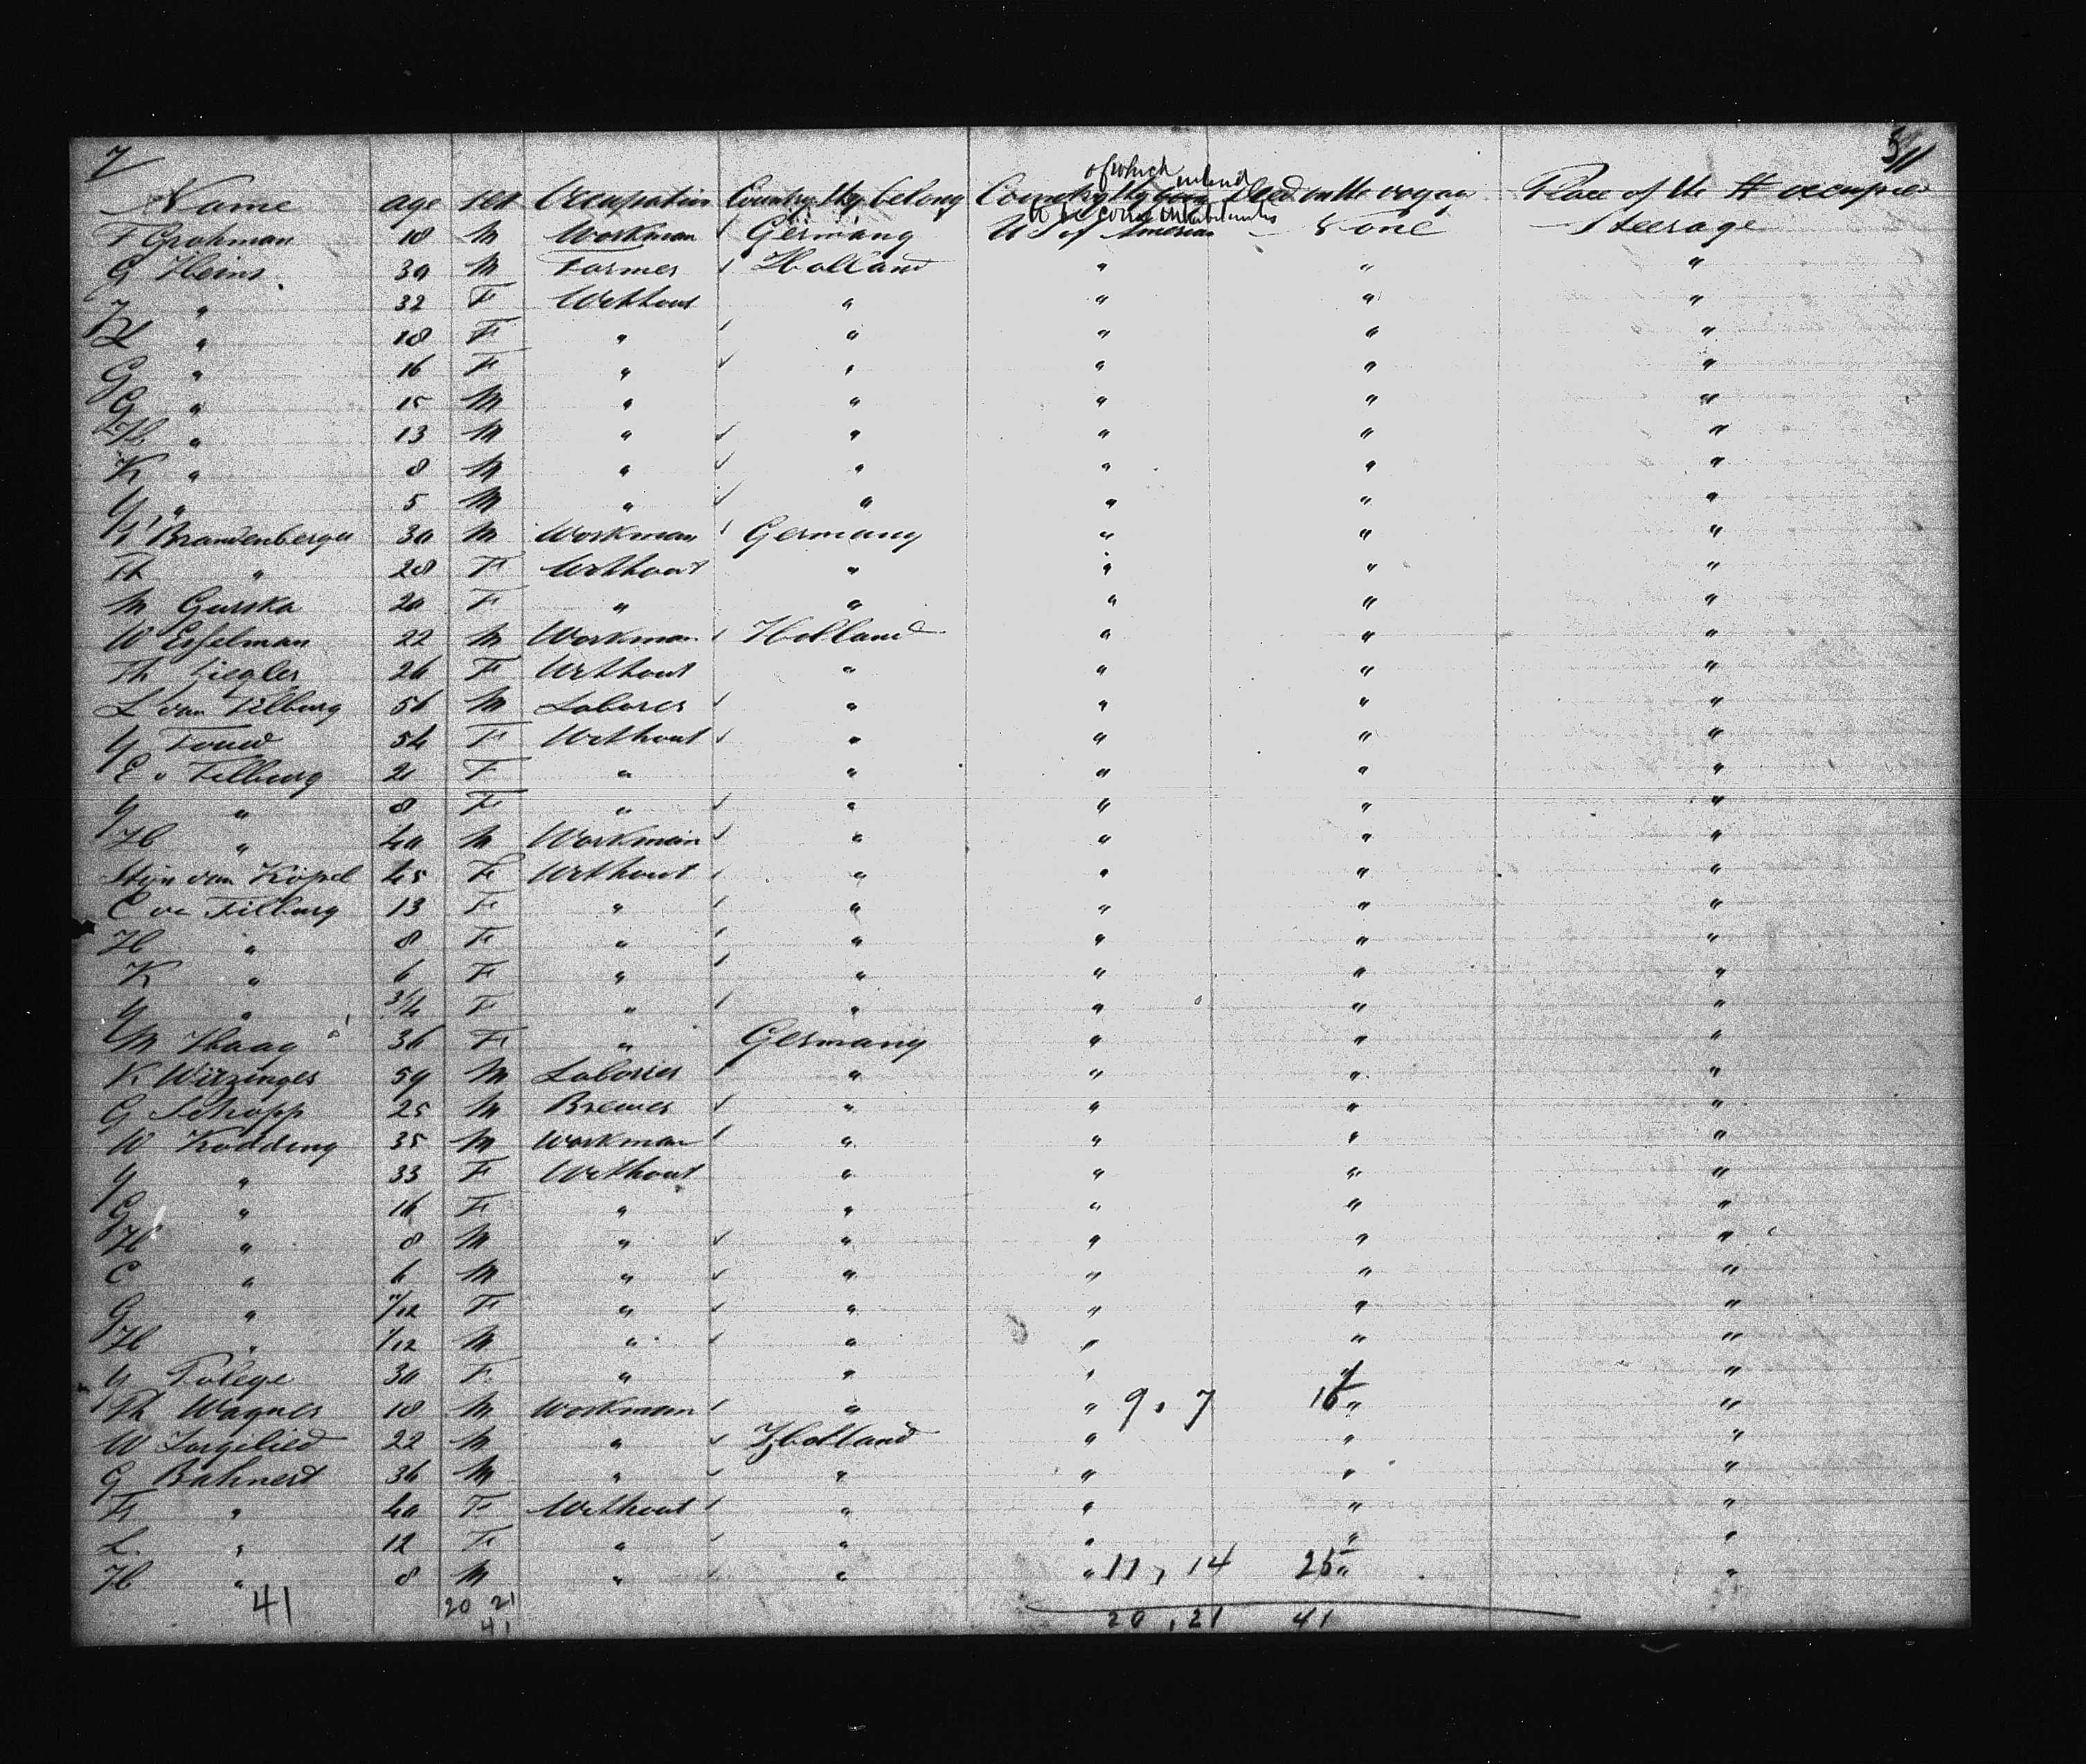 7 5
of which intend
Name age sex Occupation Country they belong Country they Died on the voyage Place of the occupied
to become inhabitants
F Grohman 18 M Workman Germany U S of America None Steerage
G Heins 30 M Farmer Holland " " "
" 32 F Without " " " "
" 18 F " " " " "
G " 16 F " " " " "
G " 15 M " " " " "
" 13 M " " " " "
K " 8 M " " " " "
Y " 5 M " " " " "
Brandenberger 30 M Workman Germany " " "
Th " 28 F Without " " " "
M Gurska 20 F " " " " "
W Esselman 22 M Workman Holland " " "
Th Ziegler 26 F Without " " " "
L van Tilburg 56 M Laborer " " " "
Y Fouw 54 F Without " " " "
E v Tilburg 21 F " " " " "
Y " 8 F " " " " "
H " 40 M Workman " " " "
Stijn vanKöpel 45 F Without " " " "
C va Tilburg 13 F " " " " "
H " 8 F " " " " "
K " 6 F " " " " "
Y " 3/4 F " " " " "
M Haag 36 F " Germany " " "
K Witzinger 59 M Laborier " " " "
G Schopp 25 M Brewer " " " "
W Kodding 35 M Workman " " " "
Y " 33 F Without " " " "
G " 16 F " " " " "
H " 8 M " " " " "
C " 6 M " " " " "
G " 11/12 F " " " " "
H " 1/12 M " " " " "
Y Folege 30 F " " " " "
Th Wagner 18 M Workman " " 9 , 7 16 " "
W Sorgelied 22 M " Holland " " "
G Bahnert 36 M " " " " "
F " 40 F Without " " " "
L. " 12 F " " " " "
H " 8 M " " " 11 , 14 25 " "
41 20 21 20 , 21 41
41